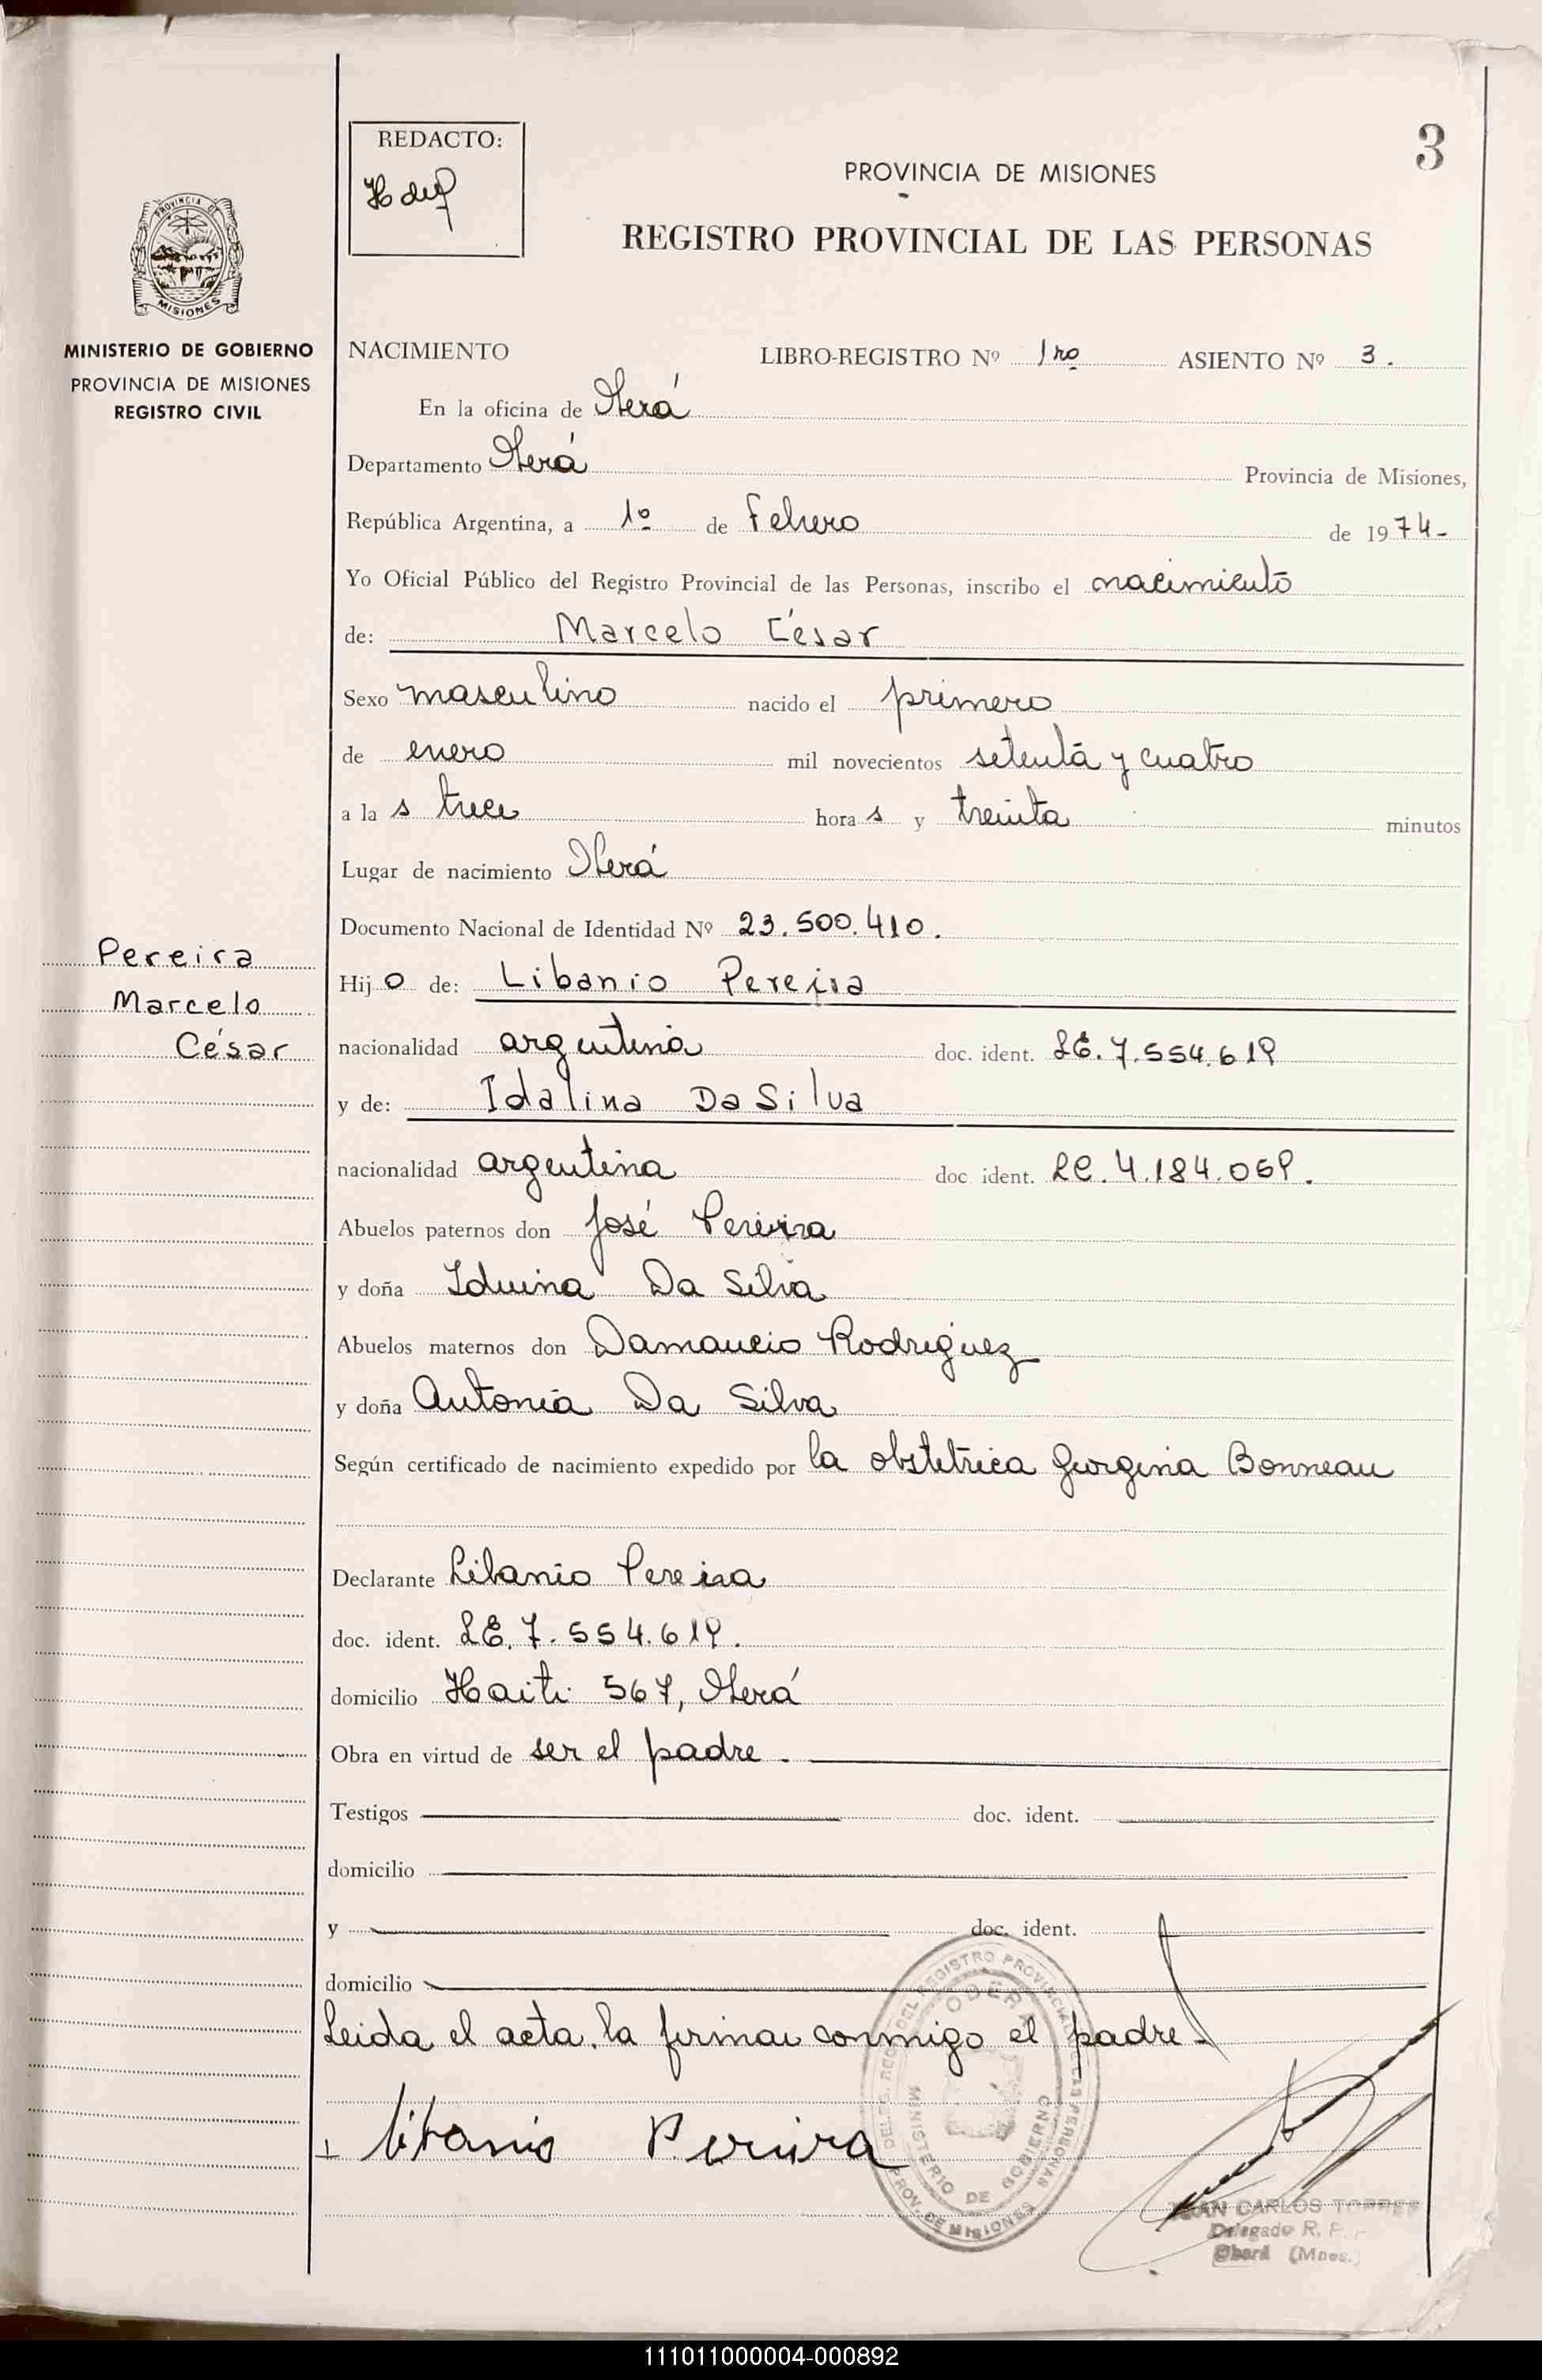 3
REDACTO:
PROVINCIA DE MISIONES
REGISTRO PROVINCIAL DE LAS PERSONAS
PROVINCIA DE
MISIONES
MINISTERIO DE GOBIERNO
PROVINCIA DE MISIONES
REGISTRO CIVIL
NACIMIENTO LIBRO-REGISTRO Nº 1ro ASIENTO Nº 3.
En la oficina de Oberá
Departamento Oberá Provincia de Misiones,
República Argentina, a 1º de Febrero de 1974-
Yo Oficial Público del Registro Provincial de las Personas, inscribo el nacimiento
de: Marcelo César
Sexo masculino nacido el primero
de enero mil novecientos setenta y cuatro
a la s trece hora s y treinta minutos
Lugar de nacimiento Oberá
Documento Nacional de Identidad Nº 23.500.410.
Pereira
Marcelo
César
Hijo de: Libanio Pereira
nacionalidad argentina doc. ident. LE. 7.554.619
y de: Idalina Da Silva
nacionalidad argentina doc. ident. LC. 4.184.059.
Abuelos paternos don José Pereira
y doña Iduina Da Silva
Abuelos maternos don Damaucio Rodriguez
y doña Antonia Da Silva
Según certificado de nacimiento expedido por la obstetrica Georgina Bonneau
Declarante Libanio Pereira
doc. ident. LE. 7.554.619.
domicilio Haiti 567, Oberá
Obra en virtud de ser el padre.
Testigos doc. ident.
domicilio
y doc. ident.
domicilio
Leida el acta, la firman conmigo el padre.
Libanio Pereira
DEL REGISTRO PROVINCIAL DE LAS PERSONAS
OBERA
MINISTERIO DE GOBIERNO
PROV. DE MISIONES
JUAN CARLOS TORRES
Delegado R. P.
Oberá (Mnes.)
111011000004-000892